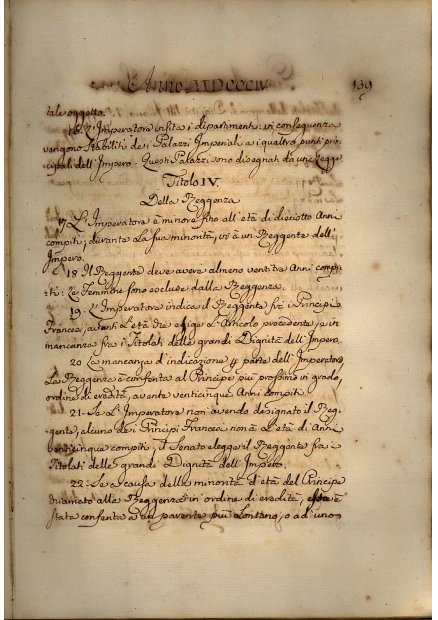 Anno MDCCCIV
139
tale oggetto.
16 L'Imperatore visita i dipartimenti: in conseguenza
vengono stabiliti dei Palazzi Imperiali ai quattro punti prin-
cipali dell'Impero. Questi Palazzi sono disegnati da una Legge.
Titolo IV.
Della Reggenza
17 L'Imperatore è minore fino all'età di dieciotto Anni
compiti; durante la sua minorità, vi è un Reggente dell'
Impero.
18 Il Reggente deve avere almeno venticinque Anni compi-
ti: Le Femmine sono escluse dalla Reggenza.
19. L'Imperatore indica il Reggente fra i Principi
Francesi, aventi l'età che esige l'Articolo precedente, e in
mancanza fra i Titolati delle grandi Dignità dell'Impero.
20 La mancanza d'indicazione per parte dell'Imperatore
La Reggenza è conferita al Principe più prossimo in grado,
ordine di eredità, avente venticinque Anni compiti.
21- Se l'Imperatore non avendo designato il Reg-
gente, alcuno dei Principi Francesi non à l'età di Anni
venticinque compiti, il Senato elegge il Reggente fra i
Titolati delle grandi Dignità dell'Impero.
22- Se a causa della minorità d'età del Principe
chiamato alla Reggenza in ordine di eredità, essa è
stata conferita a un parente più lontano, o ad uno